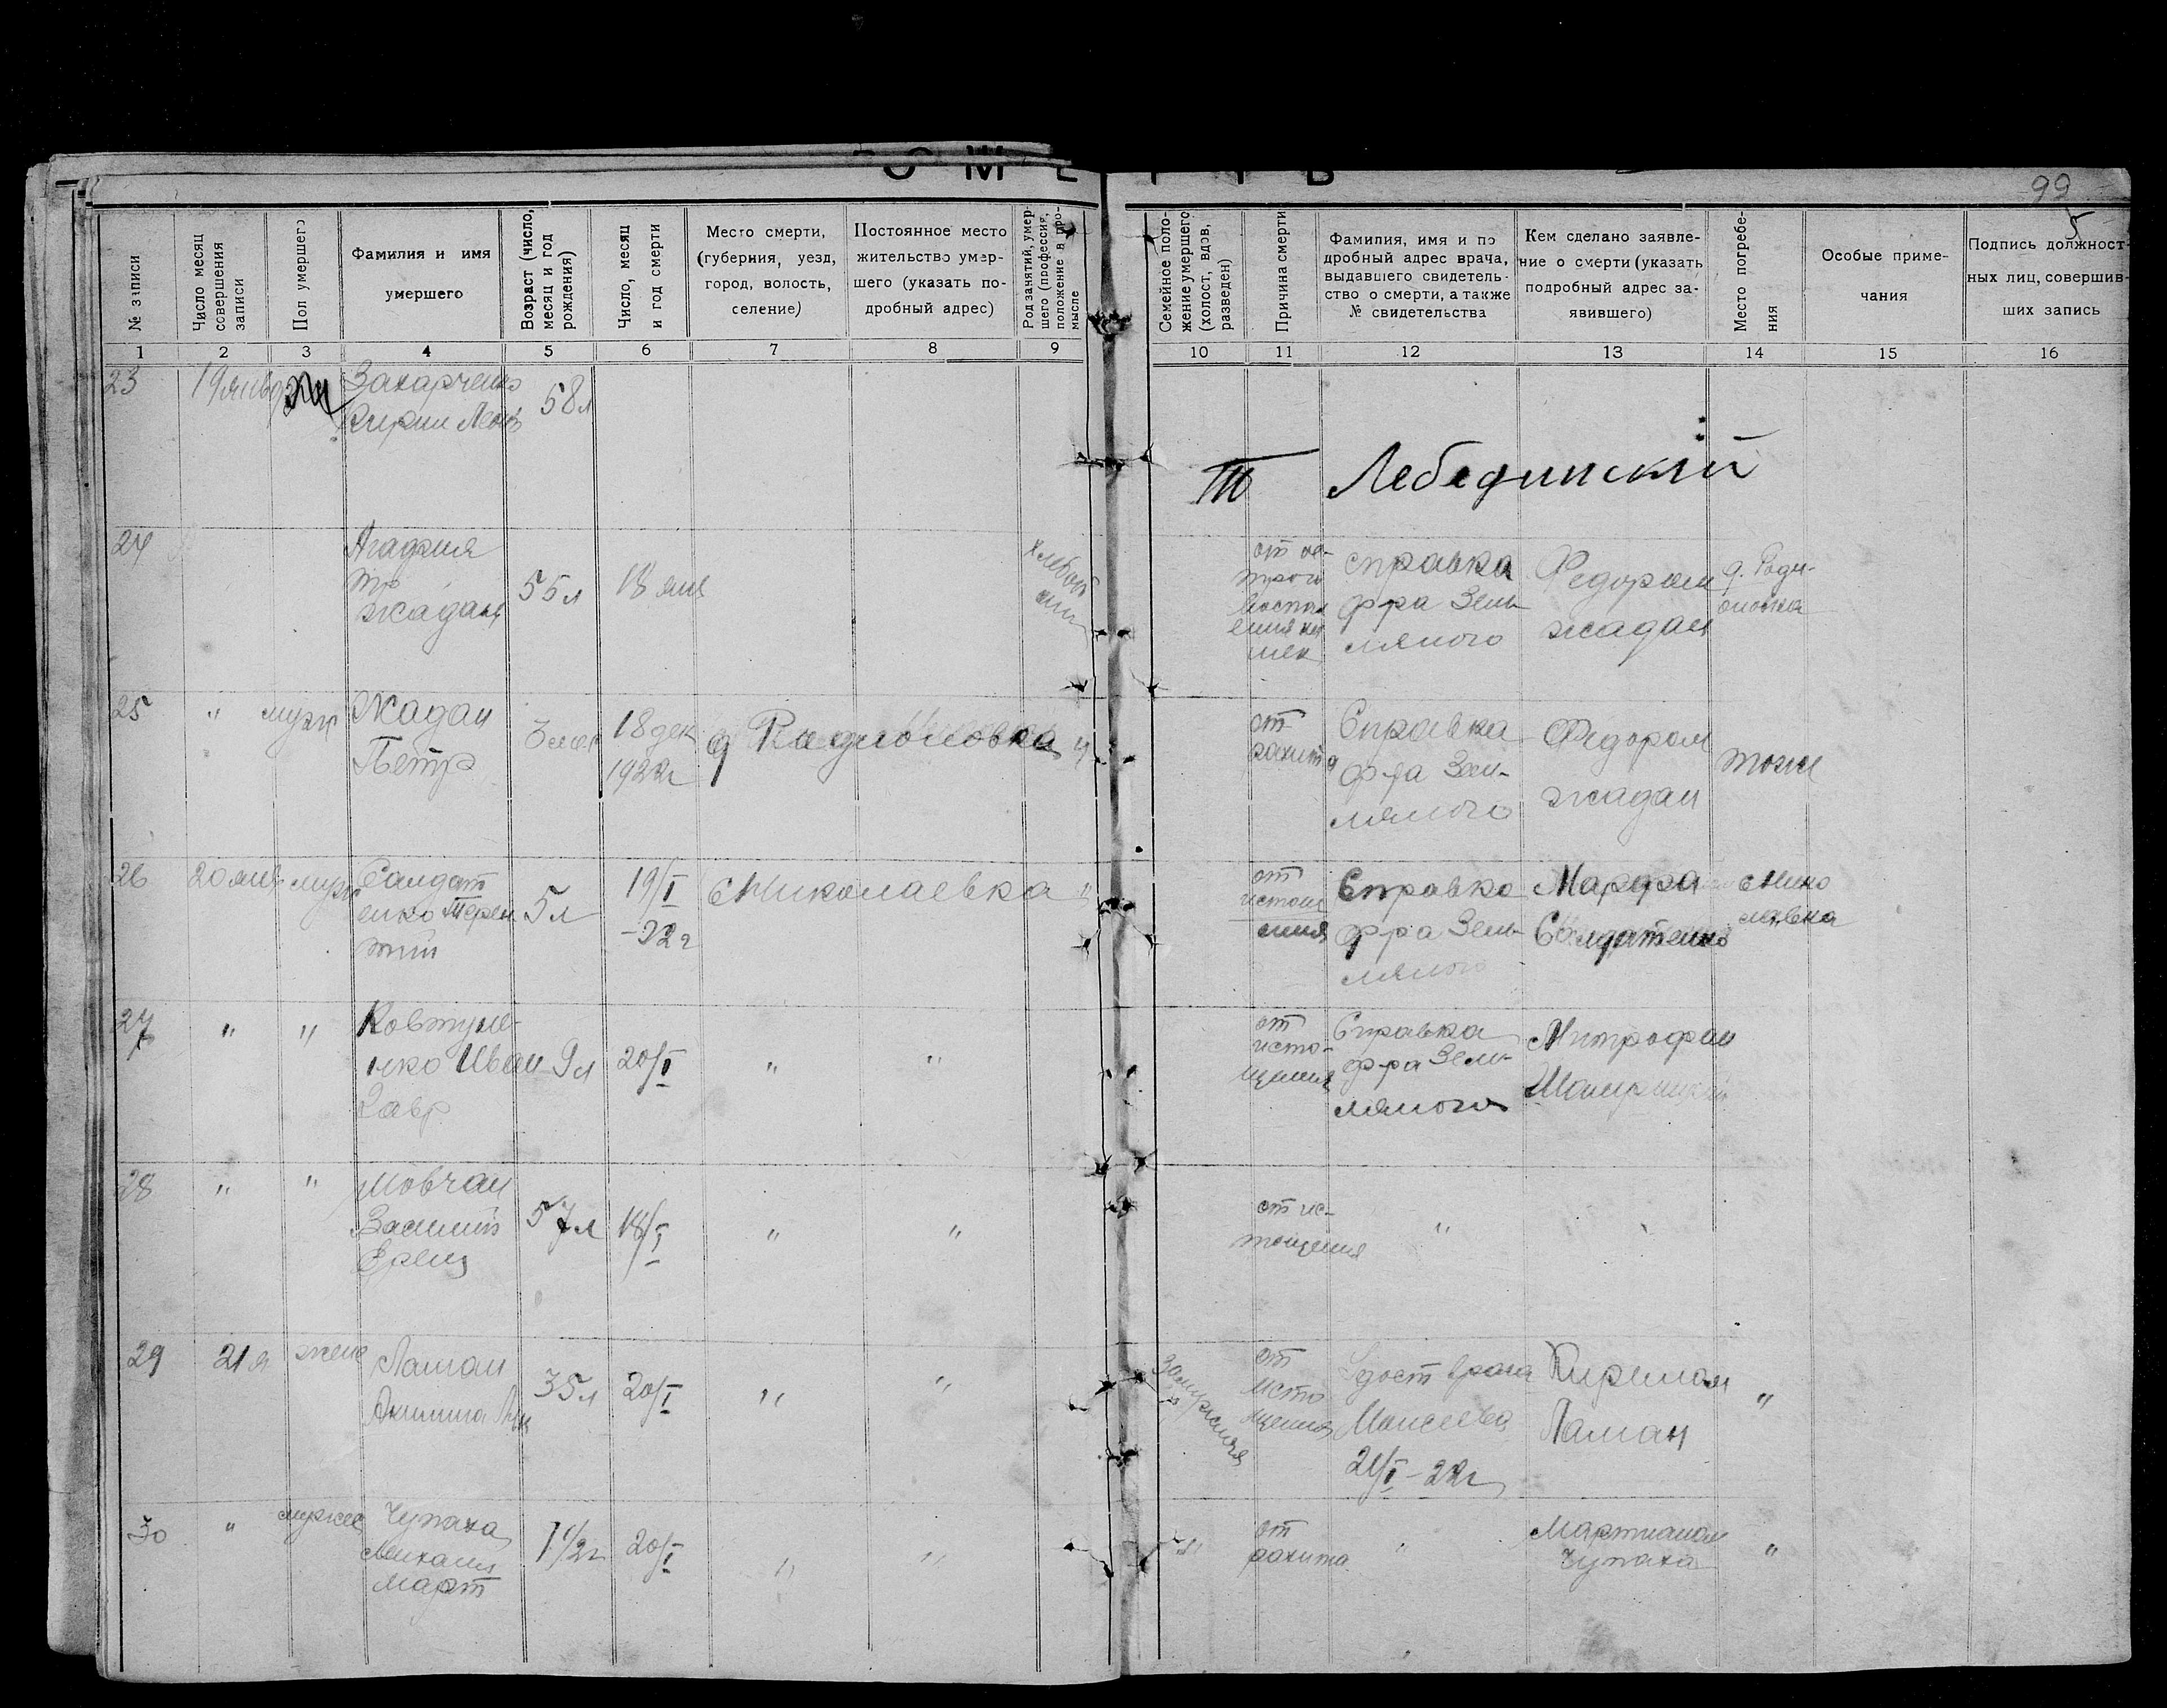 99
5
№ записи
Число месяц
совершения
записи
Пол умершего
Фамилия и имя
умершего
Возраст (число,
месяц и год
рождения)
Число, месяц
и год смерти
Место смерти,
(губерния, уезд,
город, волость,
селение)
Постоянное место
жительство умер-
шего (указать по-
дробный адрес)
Род занятий, умер-
шего (профессия,
положение в про-
мысле
Семейное поло-
жение умершего
(холост, вдов,
разведен)
Причина смерти
Фамилия, имя и по
дробный адрес врача,
выдавшего свидетель-
ство о смерти, а также
№ свидетельства
Кем сделано заявле-
ние о смерти (указать
подробный адрес за-
явившего)
Место погребе-
ния
Особые приме-
чания
Подпись должност-
ных лиц, совершив-
ших запись
1 2 3 4 5 6 7 8 9 10 11 12 13 14 15 16
23
Захарченко
58л
Ш Лебединский
24
Агафия
жадан
55л
18 янв
справка
ф-ра Зем-
ляного
Федором
жадан
25
"
муж
Жадан
Петр
18 дек
1922г
д Радионовка
"
от
рахита
Справка
ф-ра Зем-
ляного
Федором
жадан
тоже
26
20 янв
муж
Салдат
енко Терен
тий
5л
19/I
-22г
с Николаевка
"
от
Справка
ф-ра Зем-
ляного
Марфа
Солдатенко
27
"
"
Ковтуне-
нко Иван
9л
20/I
"
"
от
исто-
щения
Справка
ф-ра Зем-
ляного
Митрофан
28
"
"
Мовчан
57л
18/I
"
"
от ис-
тощения
"
29
21 я
жено
Ламан
35л
20/I
"
"
Замужняя
от
исто
щения
Удост врача
Моисеева
21/I-22г
Ламан
"
30
"
Чупаха
Михаил
Март
1 1/2г
20/I
"
"
"
от
рахита
"
Чупаха
"